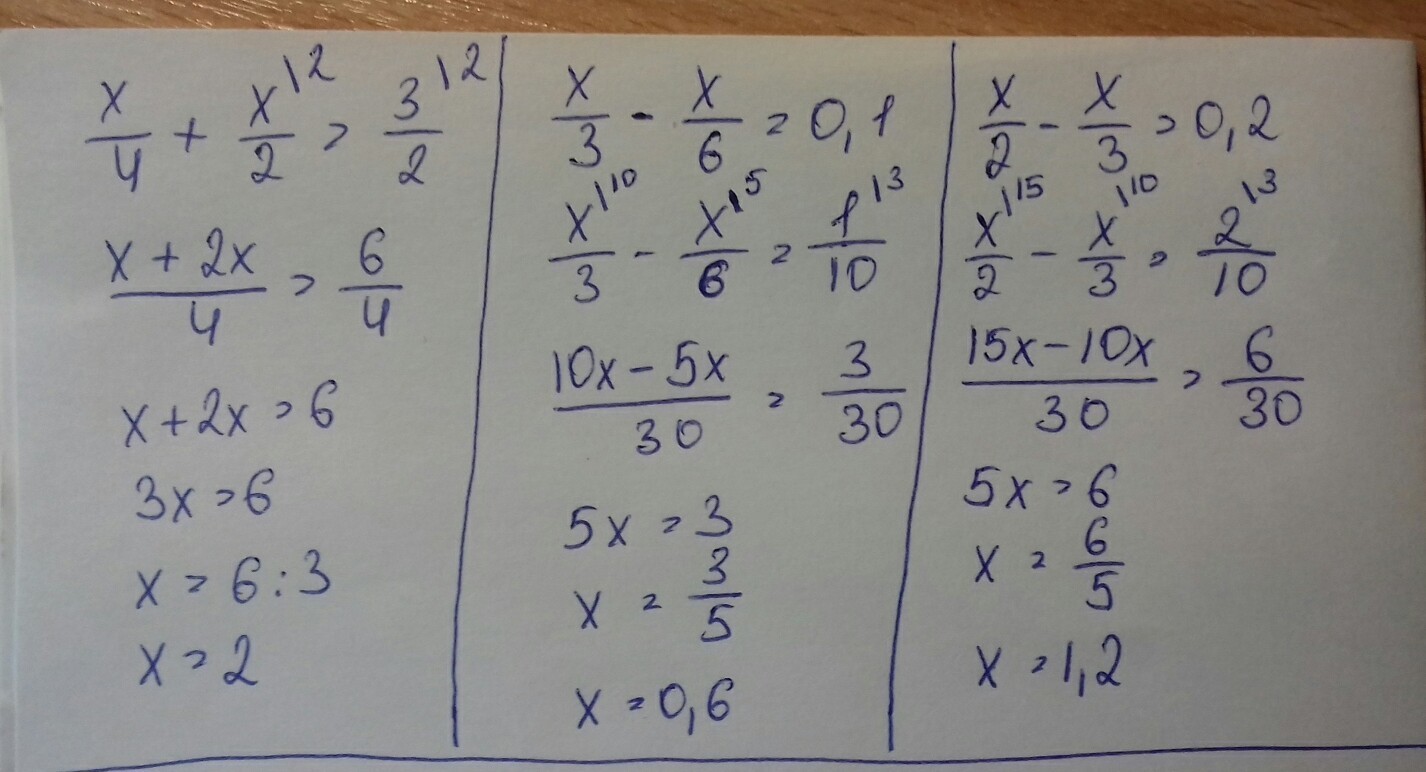 x/4 + x/2 |2 = 3/2 |2
(x + 2x)/4 = 6/4
x + 2x = 6
3x = 6
x = 6 : 3
x = 2
x/3 - x/6 = 0,1
x/3 |10 - x/6 |5 = 1/10 |3
(10x - 5x)/30 = 3/30
5x = 3
x = 3/5
x = 0,6
x/2 - x/3 = 0,2
x/2 |15 - x/3 |10 = 2/10 |3
(15x - 10x)/30 = 6/30
5x = 6
x = 6/5
x = 1,2